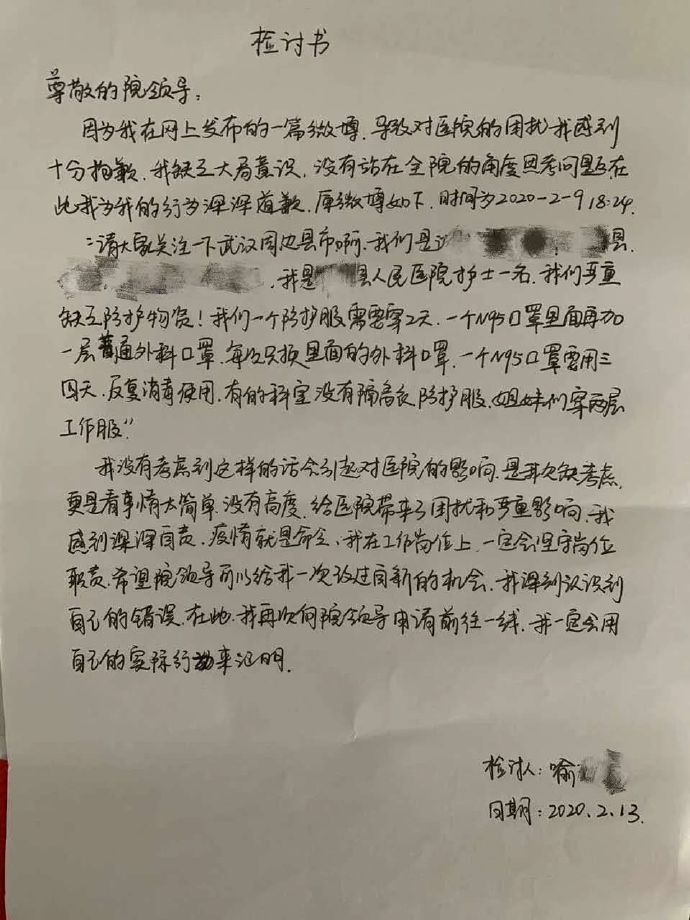 检讨书
尊敬的院领导:
因为我在网上发布的一篇微博,导致对医院的困扰我感到
十分抱歉,我缺乏大局意识,没有站在全院的角度思考问题在
此我为我的行为深深道歉,原微博如下,时间为2020-2-9 18:24.
"请大家关注一下武汉周边县市啊,我们是 县
,我是 县人民医院护士一名,我们严重
缺乏防护物资!我们一个防护服需要穿2天,一个N95口罩里面再加
一层普通外科口罩,每次只换里面的外科口罩,一个N95口罩要用三
四天,反复消毒使用,有的科室没有隔离衣防护服,姐妹们穿两层
工作服"
我没有考虑到这样的话会引起对医院的影响,是我欠缺考虑,
更是看事情太简单,没有高度,给医院带来了困扰和严重影响,我
感到深深自责,疫情就是命令,我在工作岗位上,一定会坚守岗位
职责,希望院领导可以给我一次改过自新的机会,我深刻认识到
自己的错误,在此,我再次向院领导申请前往一线,我一定会用
自己的实际行动来证明.
检讨人:喻
日期:2020.2.13.